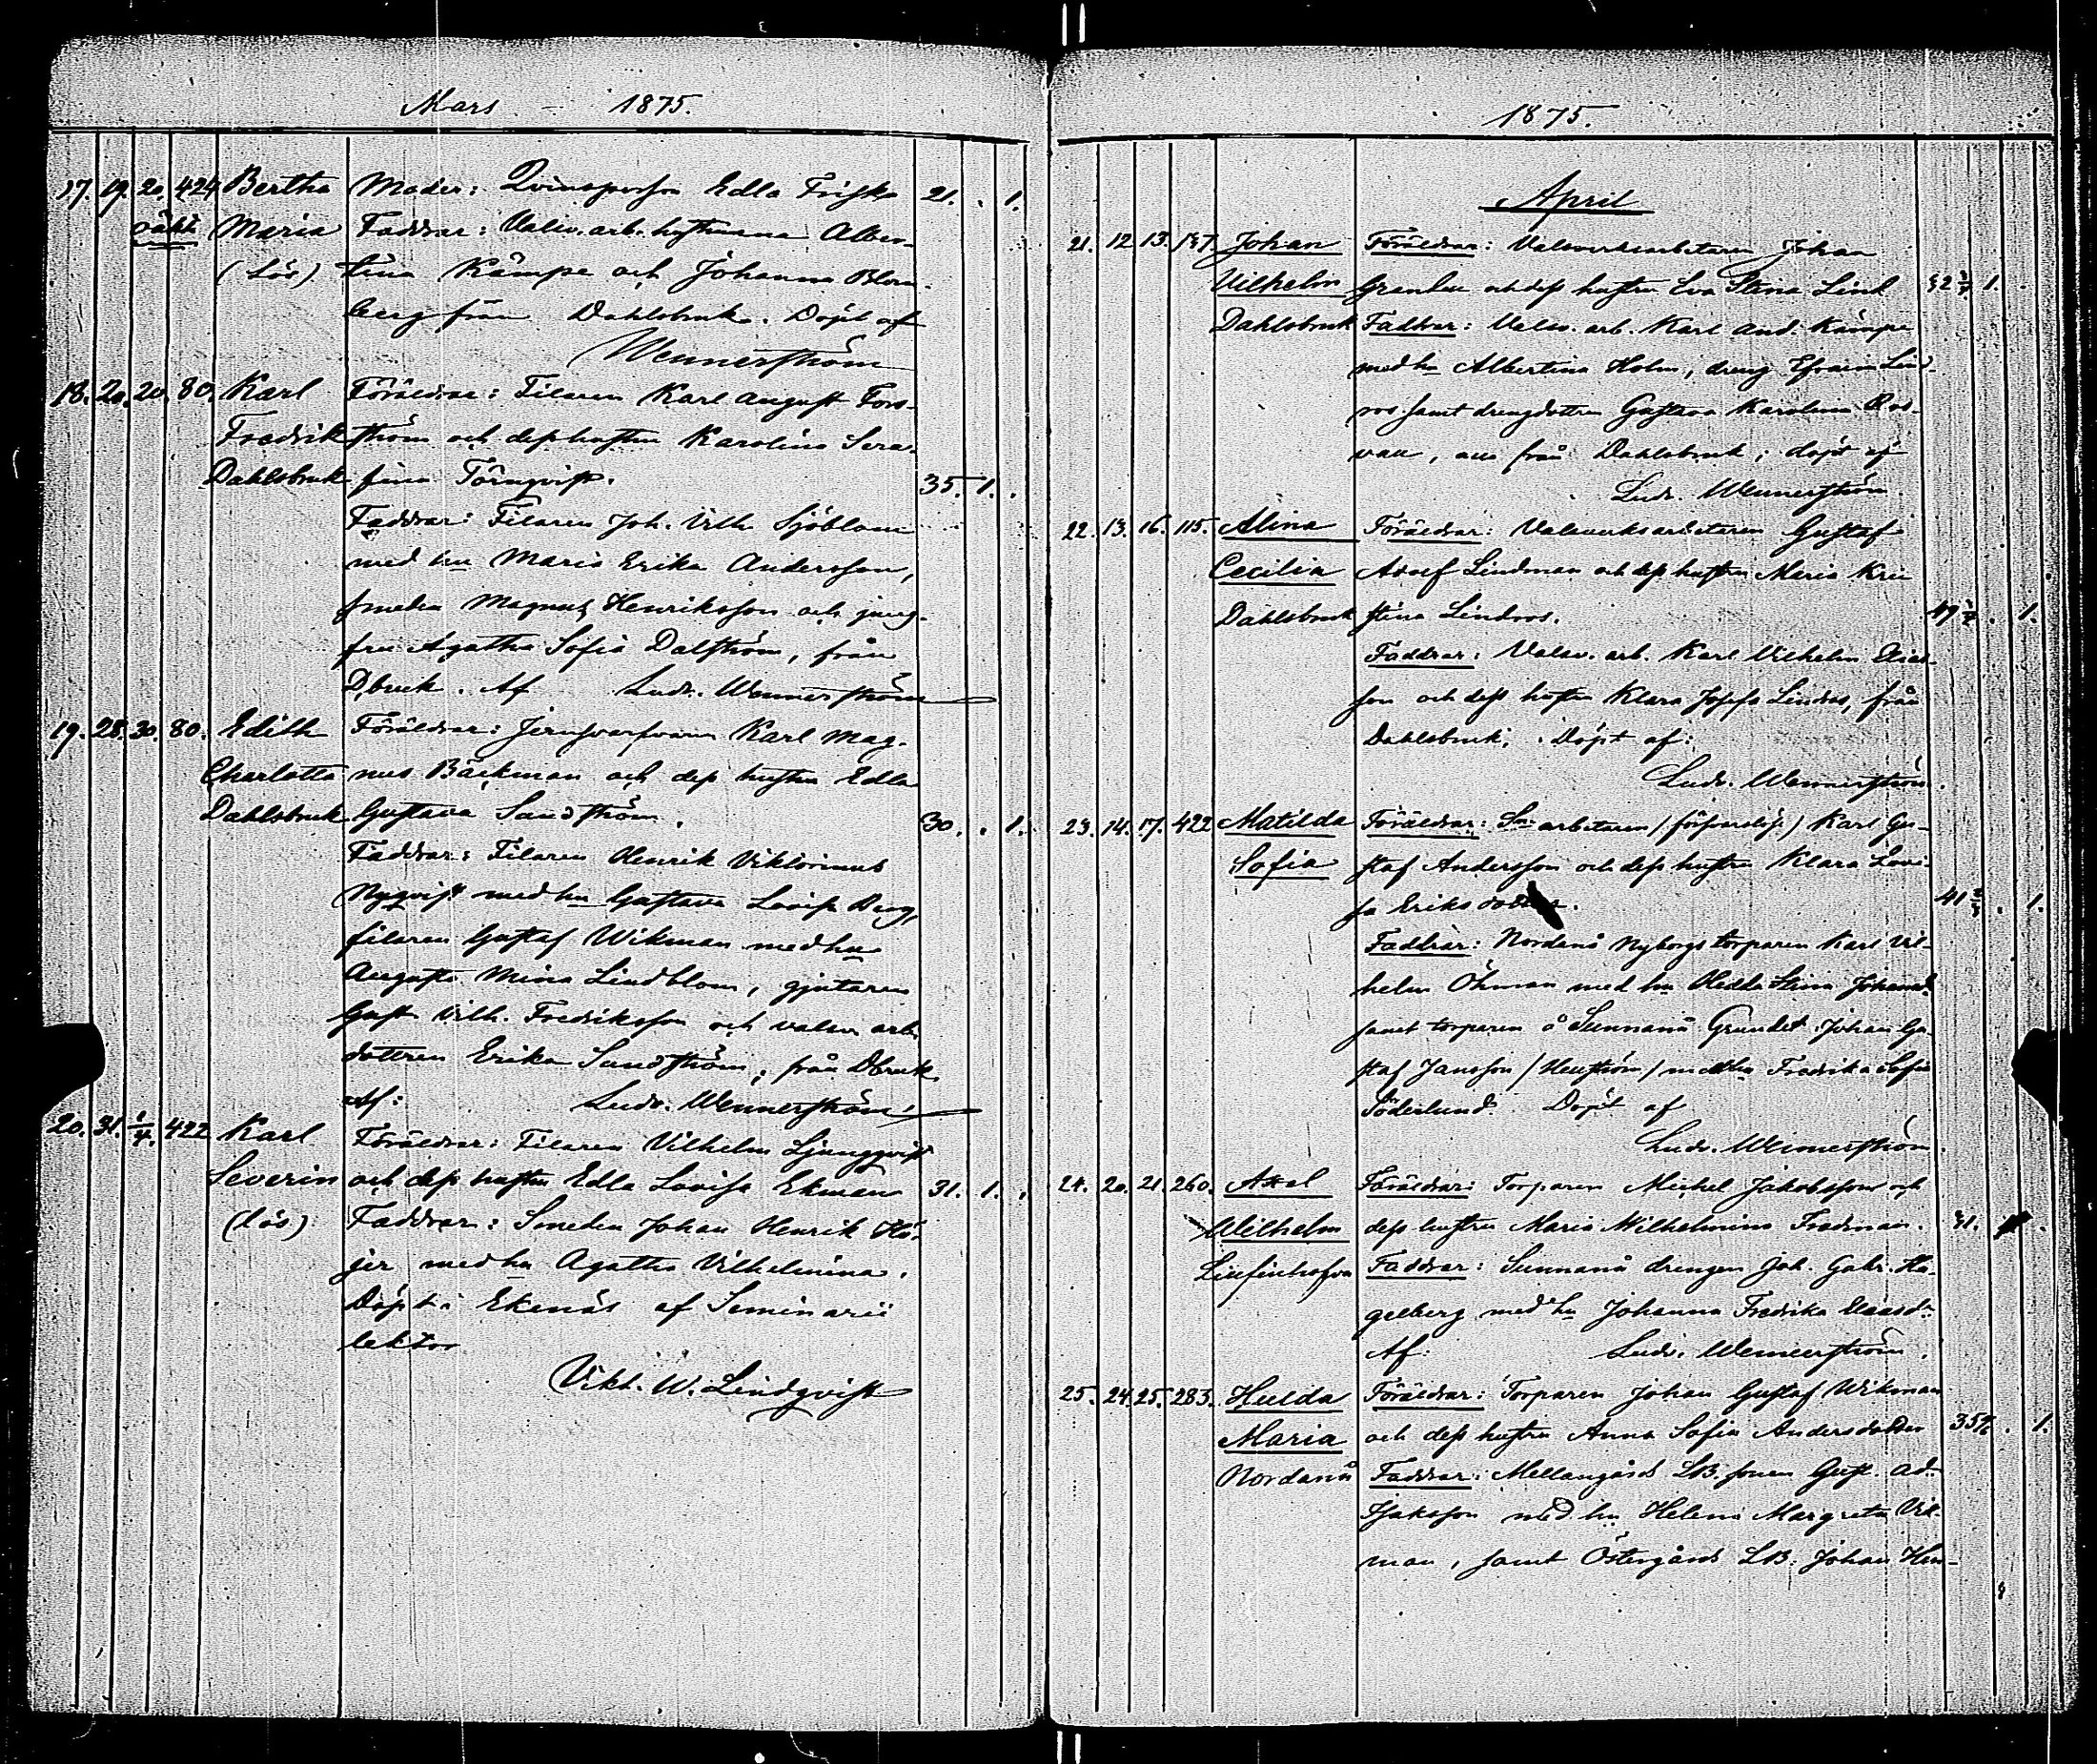 Mars - 1875.
17. 19. 20. 424 Bertha Moder: Qvinsperson Edla Frisk 21. . 1.
oäkta Maria Faddrar: Valsv. arb. hustruna Alber-
(Lös). tina Kämpe och Johanna Blom-
berg från Dahlsbruk. Döpt af
Wennerström
18. 20. 20. 80. Karl Föräldrar: Filaren Karl August Fors-
Fredrik ström och dess hustru Karolina Sera-
Dahlsbruk fina Törnqvist. 35. 1. .
Faddrar: Filaren Joh. Vilh. Sjöblom
med hu Maria Erika Andersson,
smeden Magnus Henriksson och jung-
fru Agatha Sofia Dalström, från
D,bruk. Af Ludv. Wennerström
19. 28. 30. 80. Edith Föräldrar: Jernsvarfvaren Karl Mag-
Charlotta nus Bäckman och dess hustru Edla
Dahlsbruk Gustava Sandström. 30. . 1.
Faddrar: Filaren Henrik Viktorinus
Nyqvist med hu Gustava Lovisa Berg,
filaren Gustaf Wikman med hu
Augusta Mina Lindblom, gjutaren
Gust. Vilh. Fredriksson och valsv. arb.
dottren Erika Sundström, från Dbruk.
Af: Ludv. Wennerström
20. 31. 1/4. 422 Karl Föräldrar: Filaren Vilhelm Ljungqvist
Severin och dess hustru Edla Lovisa Ekman 31. 1. .
(lös) Faddrar: Smeden Johan Henrik Hö-
jer med hu Agatha Vilhelmina.
Döpt i Ekenäs af Seminarii
lektor
Vikt. W. Lindqvist
1875.
April
21. 12. 13. 147 Johan Föräldrar: Valsverksarbetaren Johan
Vilhelm Granlun och dess hustru Eva Stina Lind 1. .
Dahlsbruk Faddrar: Valsv. arb. Karl And. Kämpe
med hu Albertina Holm, dreng Efraim Lind-
ros samt drengdottren Gustava Karolina Ros-
vall, alla från Dahlsbruk; döpt af
Ludv. Wennerström.
22. 13. 16. 115. Alina Föräldrar: Valsverksarbetaren Gustaf
Cecilia Adolf Lindman och dess hustru Maria Kri-
Dahlsbruk stina Lindros. . 1.
Faddrar: Valsv. arb. Karl Vilhelm Elias-
son och dess hustru Klara Josefa Lindros, från
Dahlsbruk; Döpt af:
Ludv. Wennerström.
23. 14. 17. 422 Matilda Föräldrar: Sm arbetaren (försvarslös) Karl Gu-
Sofia staf Andersson och dess hustru Klara Lovi-
sa Eriksdotter. . 1.
Faddrar: Nordanå Nyborgs torparen Karl Vil-
helm Öhman med hu Hedda Stina Johansd.
samt torparen å Sunnanå Grundet Johan Gu-
staf Jansson / / med hu Fredrika Sofia
Söderlund. Döpt af
Ludv. Wennerström.
24. 20. 21. 260. Axel Föräldrar: Torparen Michel Jakobsson och
Wilhelm dess hustru Maria Wilhelmina Fredman. 31. .
Faddrar: Sunnanå drengen Joh. Gabr. Ha-
gelberg med hu Johanna Fredrika Eliasdr
Af: Ludv. Wennerström.
25. 24. 25. 283. Hulda Föräldrar: Torparen Johan Gustaf Wikman
Maria och dess hustru Anna Sofia Andersdotter . 1.
Nordanå Faddrar: Mellangårds LB. sonen Gust. Ad.
Isaksson med hu Helena Margreta Vik-
man, samt Östergårds LB. Johan Hen-